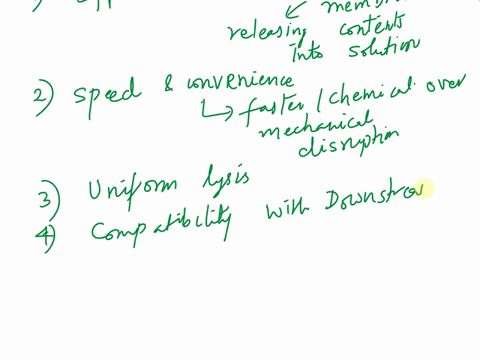 releasing contents
Into solution
2) Speed & convenience
↳ faster / chemical over
mechanical
disruption
3) Uniform lysis
4) Compatibility with Downstrea